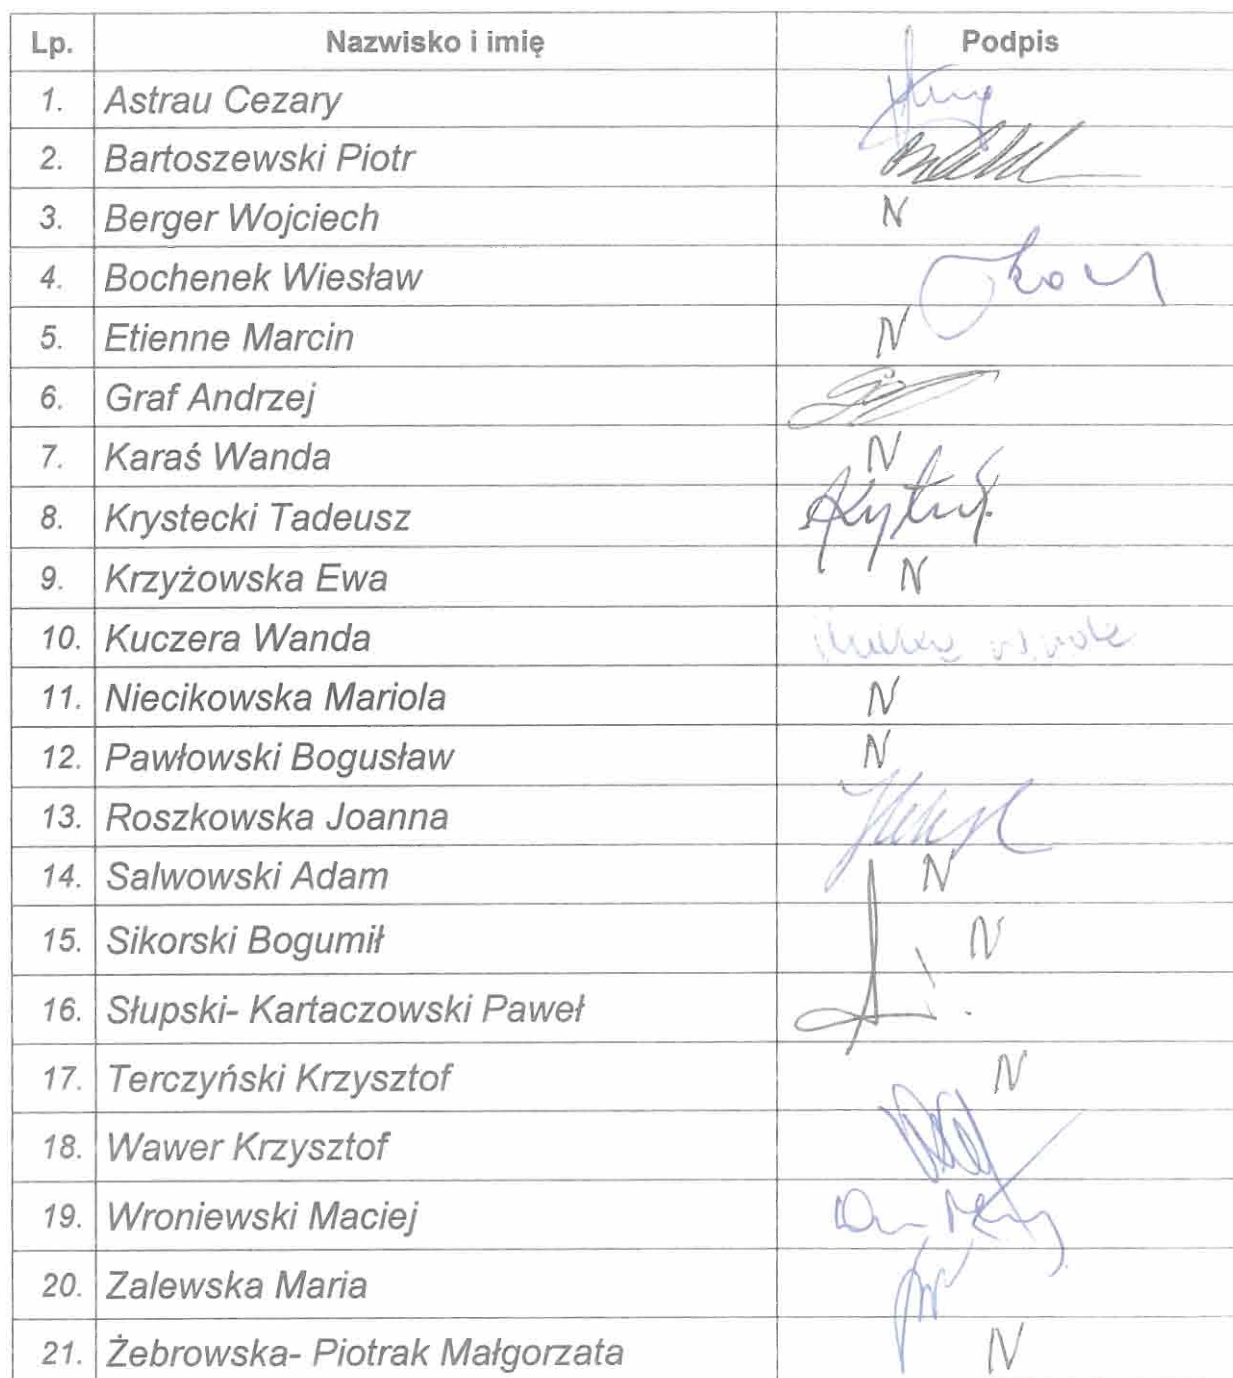 Lp. Nazwisko i imię Podpis
1. Astrau Cezary
2. Bartoszewski Piotr
3. Berger Wojciech N
4. Bochenek Wiesław
5. Etienne Marcin N
6. Graf Andrzej
7. Karaś Wanda N
8. Krystecki Tadeusz
9. Krzyżowska Ewa N
10. Kuczera Wanda
11. Niecikowska Mariola N
12. Pawłowski Bogusław N
13. Roszkowska Joanna
14. Salwowski Adam N
15. Sikorski Bogumił N
16. Słupski- Kartaczowski Paweł
17. Terczyński Krzysztof N
18. Wawer Krzysztof
19. Wroniewski Maciej
20. Zalewska Maria
21. Żebrowska- Piotrak Małgorzata N